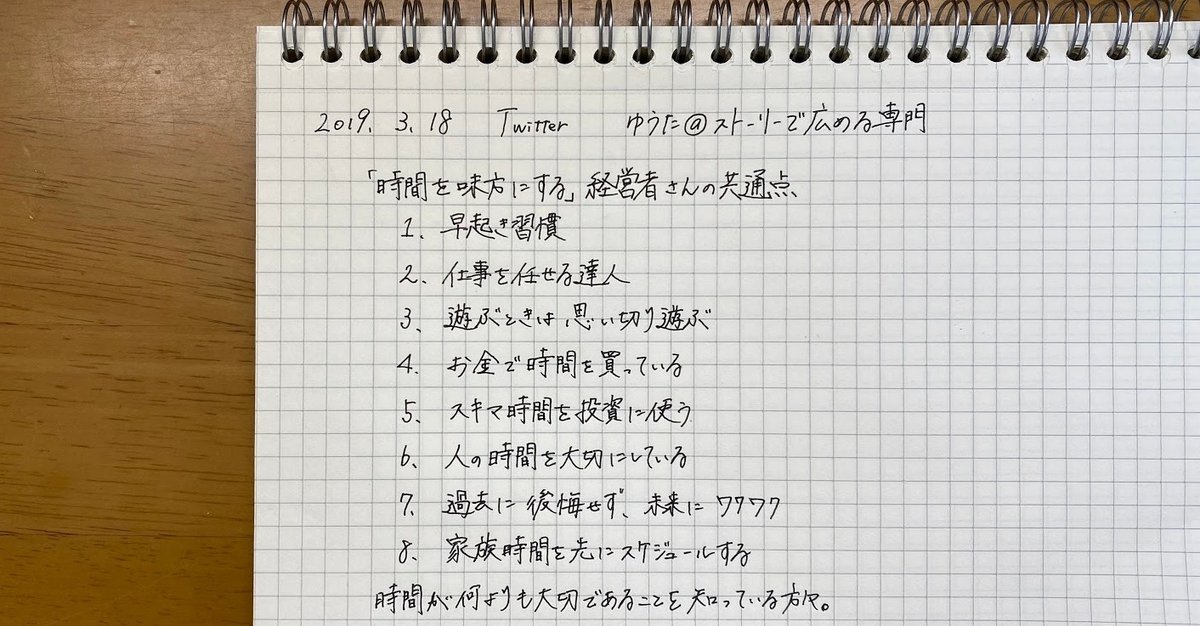 2019. 3. 18 Twitter ゆうた@ストーリーで広める専門
「時間を味方にする」経営者さんの共通点
1、早起き習慣
2、仕事を任せる達人
3、遊ぶときは、思い切り遊ぶ
4、お金で時間を買っている
5、スキマ時間を投資に使う
6、人の時間を大切にしている
7、過去に後悔せず、未来にワクワク
8、家族時間を先にスケジュールする
時間が何よりも大切であることを知っている方々。